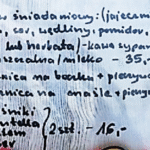 w śniadaniowy: (jajeczn
, ser, wędliny, pomidor,
lub herbata/-kawa sypan
mleko - 35,-
nica na boczku + pieczyw
nica na maśle + pieczyw
śniki
2szt. - 16,-